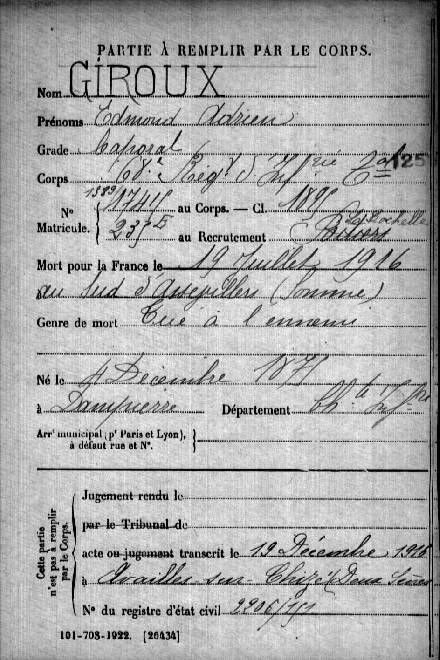 PARTIE À REMPLIR PAR LE CORPS.
Nom GIROUX
Prénoms Edmond Adrien
Grade Caporal
Corps Rég d' Inf rie 125
N° Matricule. au Corps. — Cl. 189
au Recrutement La Rochelle Poitiers
Mort pour la France le 19 Juillet 1916
au Sud d'Assevillers (Somme)
Genre de mort Tué à l'ennemi
Né le 4 Décembre 187
à Dampierre Département Ch. te Inf re
Arr! municipal (p! Paris et Lyon),
à défaut rue et N°.
Cette partie
n'est pas à remplir
par le Corps.
Jugement rendu le
par le Tribunal de
acte ou jugement transcrit le 19 Décembre 1916
à Availles-sur-Chizé Deux Sèvres
N° du registre d'état civil 2906/151
101-708-1922. [26434]